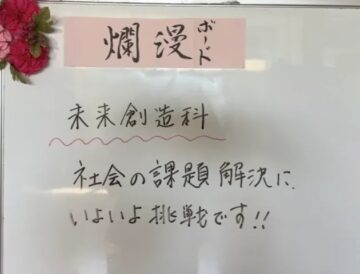 爛漫ボード
未来創造科
社会の課題解決に、
いよいよ挑戦です!!